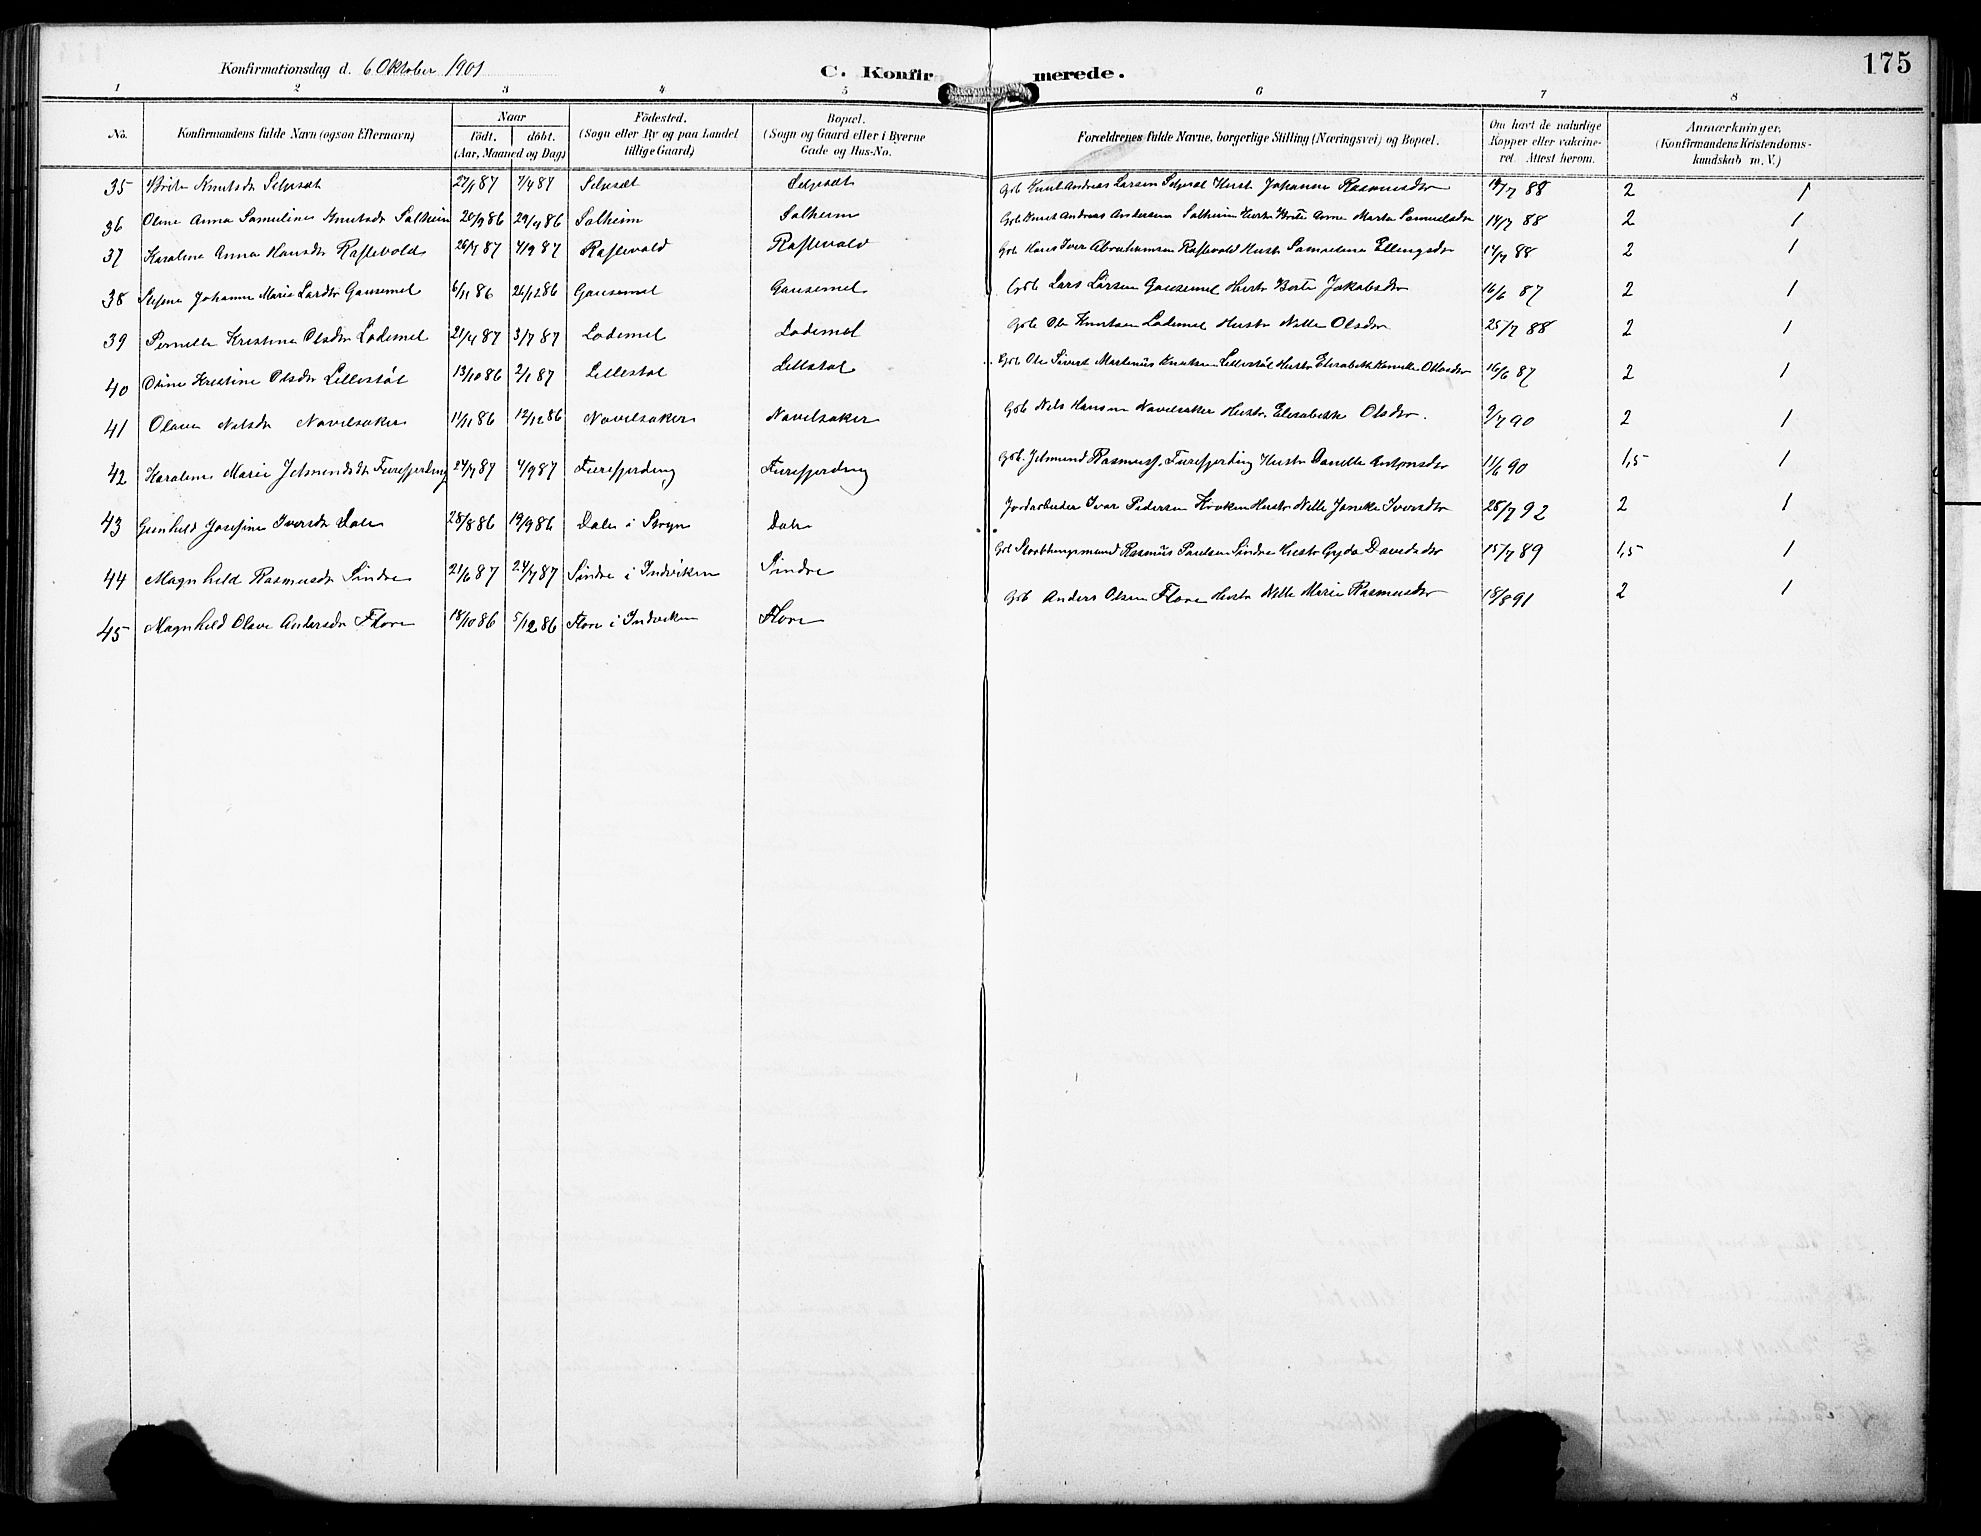 175
Konfirmationsdag d. 6 Oktober 1901
C. Konfirmerede.
1 2 3 4 5 6 7 8
No. Konfirmandens fulde Navn (ogsaa Efternavn) Naar födt. döbt. (Aar, Maaned og Dag) Födested. (Sogn eller By og paa Landet tillige Gaard) Bopæl. (Sogn og Gaard eller i Byerne Gade og Hus-No. Forældrenes fulde Navne, borgerlige Stilling (Næringsvei) og Bopæl. Om havt de naturlige Kopper eller vakcineret. Attest herom. Anmærkninger. (Konfirmandens Kristendomskundskab m. V.)
35 Brite Knutsdr Seljesæt 27/1 87 7/4 87 Seljesæt Seljesæt Gdb Knut Andreas Larsen Seljesæt Hustr Johanne Rasmusdr 88 2 1
36 Oline Anna Samuline Knutsdr Solheim 20/9 86 86 Solheim Solheim Gdb Knut Andreas Andersen Solheim Hustr Brite Anne Marta Samuelsdr 14/7 88 2 1
37 Karoline Anna Hansdr Raftevold 26/7 87 4/9 87 Raftevold Raftevold Gdb Hans Iver Abrahamsen Raftevold Hustr Samueline Ellingsdr 14/7 88 2 1
38 Johanne Marie Larsdr Gausemel 6/11 86 26/12 86 Gausemel Gausemel Gdb Lars Larsen Gausemel Hustr Berte Jakobsdr 16/6 87 2 1
39 Pernille Kristine Olsdr Lodemel 21/4 87 3/7 87 Lodemel Lodemel Gdb Ole Knutsen Lodemel Hustr Nille Olsdr 25/7 88 2 1
40 Oline Kristine Olsdr Lillestøl 13/10 86 2/1 87 Lillestøl Lillestøl Gdb Ole Sivert Martinus Knutsen Lillestøl Hustr Elisabeth 16/6 87 2 1
41 Olave Nilsdr Navelsaker 11/11 86 12/12 86 Navelsaker Navelsaker Gdb Nils Hansen Navelsaker Hustr. Elisabeth Olsdr. 2/7 90 2 1
42 Karoline Marie Jetmundsdr Furefjerding 24/7 87 4/9 87 Furefjerding Furefjerding Gdb. Jetmund Rasmuss. Furefjerding Hustr Danielle Antonsdr 11/6 90 1,5 1
43 Gunhild Josefine Iversdr Dale 28/8 86 19/9 86 Dale i Stryn Dale Jordarbeider Ivar Pedersen Kroken Hustr Nille Janike Iversdr 28/7 92 2 1
44 Magnhild Rasmusdr Sindre 21/6 87 24/7 87 Sindre i Indviken Sindre Gdb Rasmus Paulsen Sindre Hustr Gyda Davidsdr 15/7 89 1,5 1
45 Magnhild Olave Andersdr Flore 18/10 86 5/12 86 Flore i Indviken Flore Gdb Anders Olsen Flore Hustr Nille Marie Rasmusdr 18/8 91 2 1